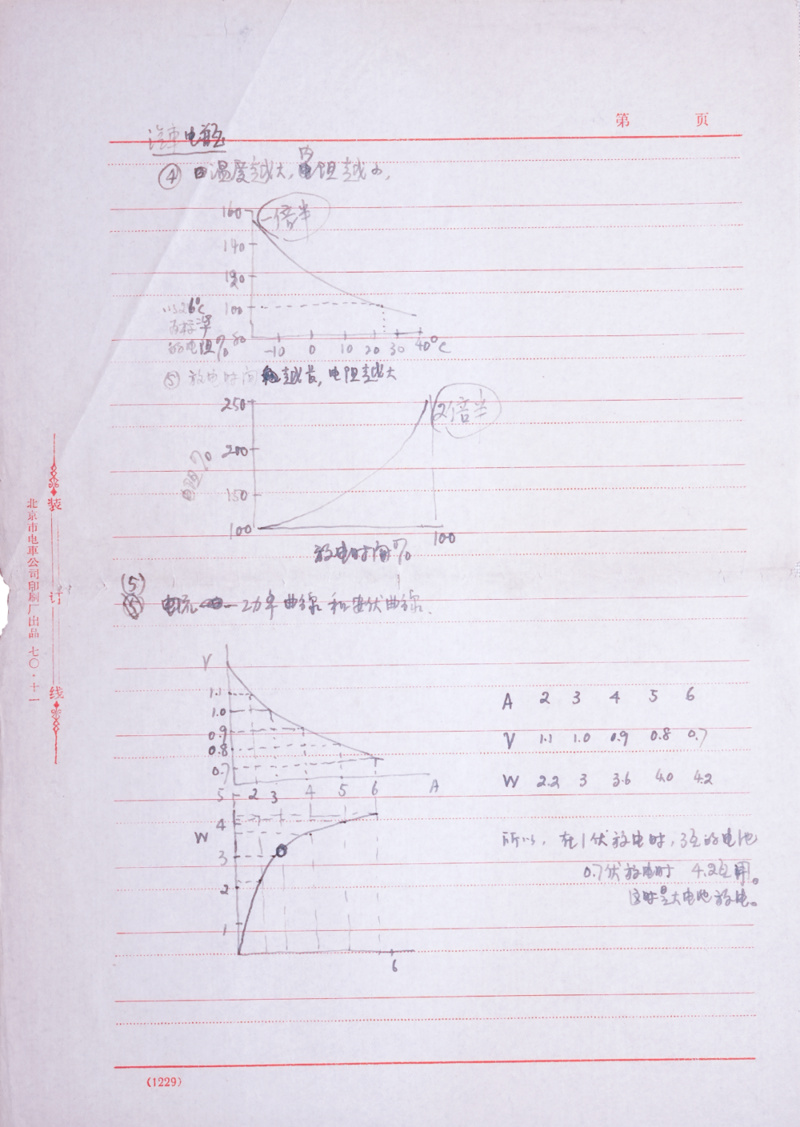 第 页
汽车电瓶
④ 温度越大,内阻越小,
160
一倍半
140
120
以26°C
100
为标准
的电阻% 80
-10 0 10 20 30 40°C
⑤ 放电时间越长,电阻越大
250
2倍半
200
%
150
100
100
放电时间%
(5)
电流——功率曲线和安伏曲线.
V
1.1
1.0
0.9
0.8
0.7
2 3 4 5 6 A
A 2 3 4 5 6
V 1.1 1.0 0.9 0.8 0.7
W 2.2 3 3.6 4.0 4.2
5
4
W
3
2
1
6
所以,在1伏放电时,3瓦的电池
0.7伏放电时 4.2瓦用。
这时是大电池放电。
装 订 线
北京市电車公司印刷厂出品 七〇·十一
(1229)